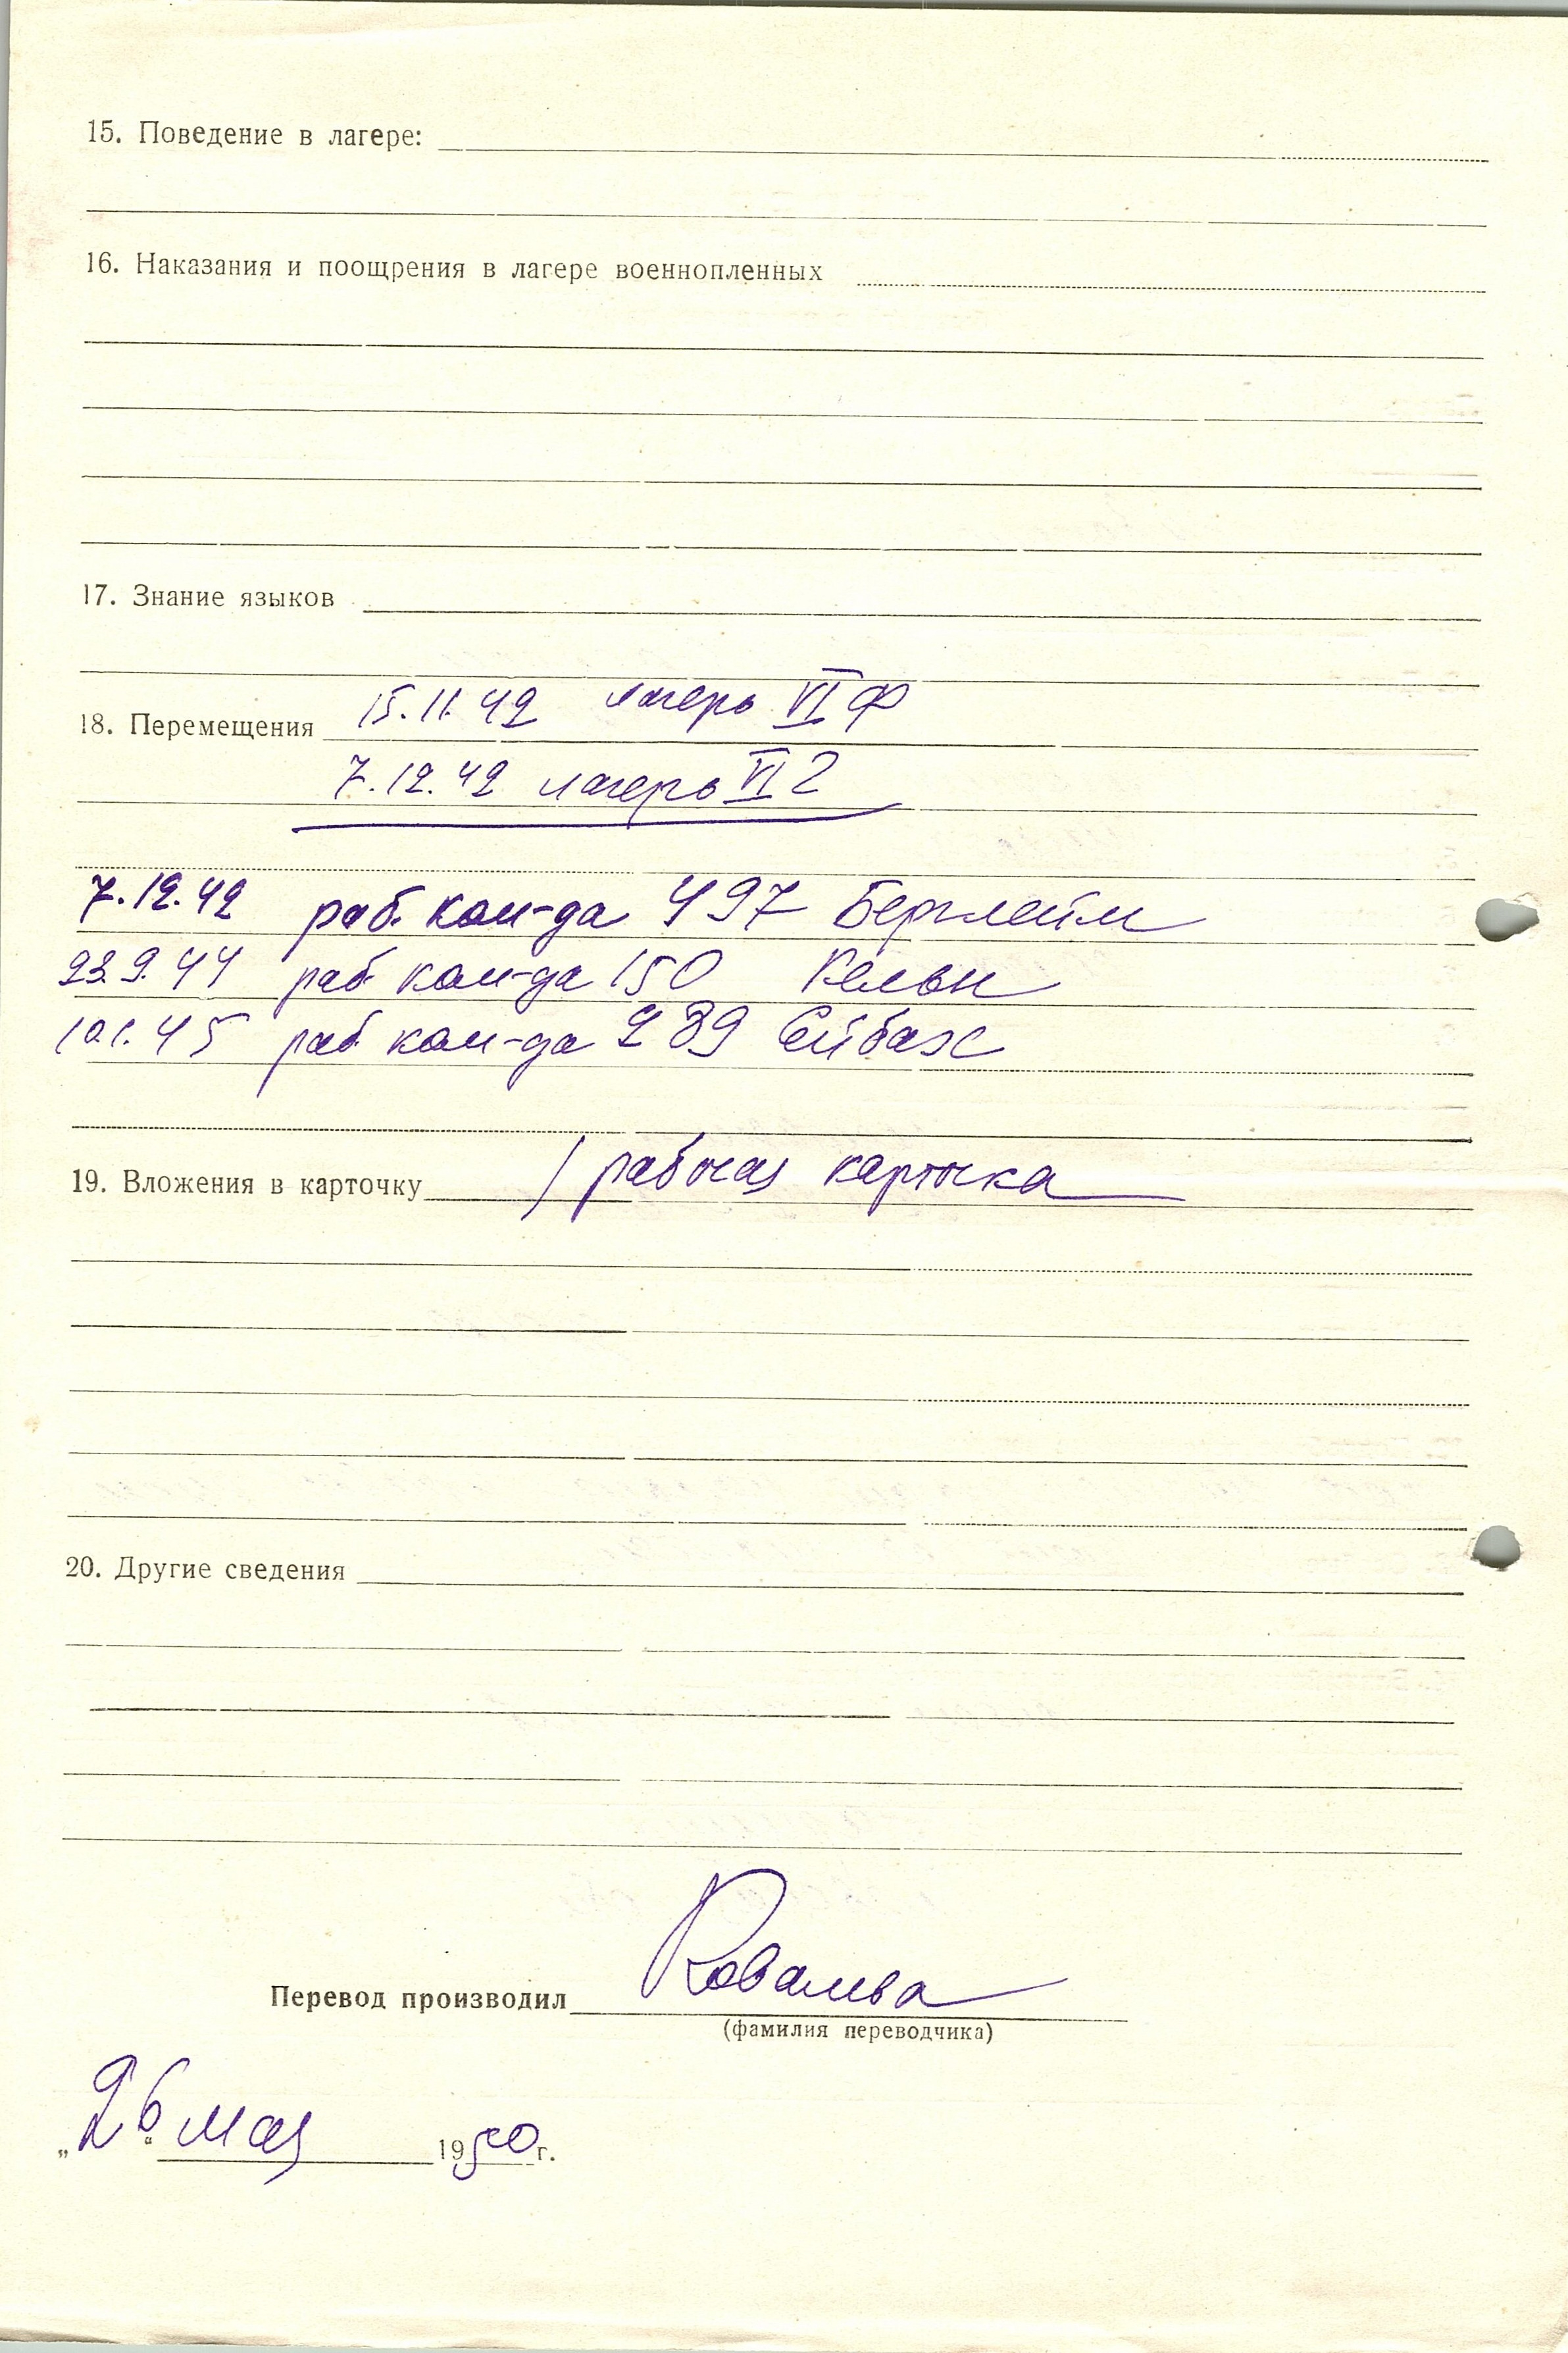 15. Поведение в лагере:
16. Наказания и поощрения в лагере военнопленных
17. Знание языков
18. Перемещения 15.11.42 лагерь VI Ф
7.12.42 лагерь VI Г
7.12.42 раб. ком-да 497 Берглейм
23.9.44 раб ком-да 150 Кельн
10.1.45 раб ком-да 289 Ейбах
19. Вложения в карточку / рабочая карточка
20. Другие сведения
Перевод производил Ковалева
(фамилия переводчика)
„26“ мая 1950 г.